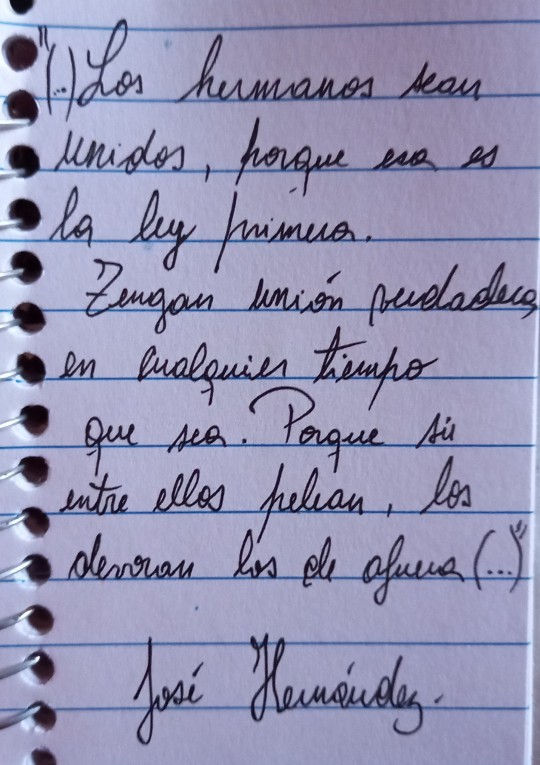 "(...) Los hermanos sean
unidos, porque esa es
la ley primera.
Tengan unión verdadera
en cualquier tiempo
que sea. Porque si
entre ellos pelean, los
devoran los de afuera (...)"
José Hernández.